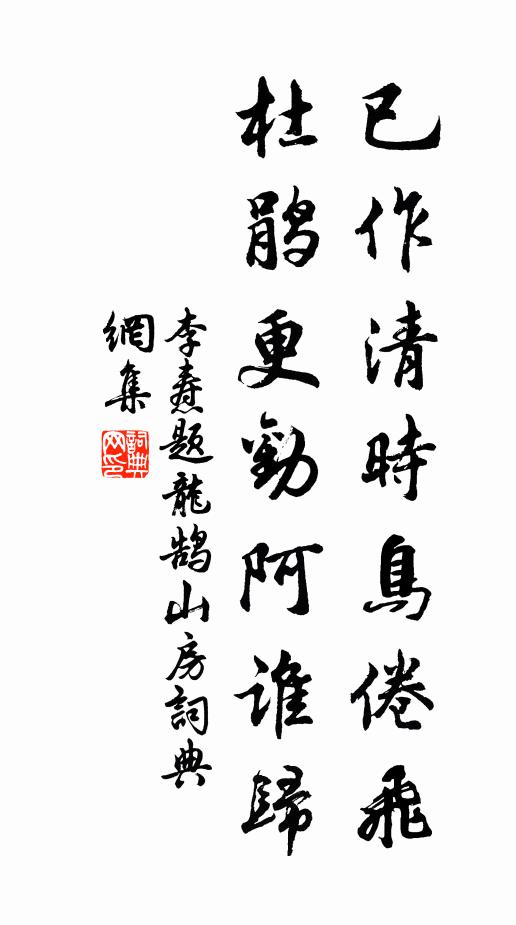 已作清時鳥倦飛
杜鵑更勸阿誰歸
李燾題龍鵠山房詞典
網集
詞典網印